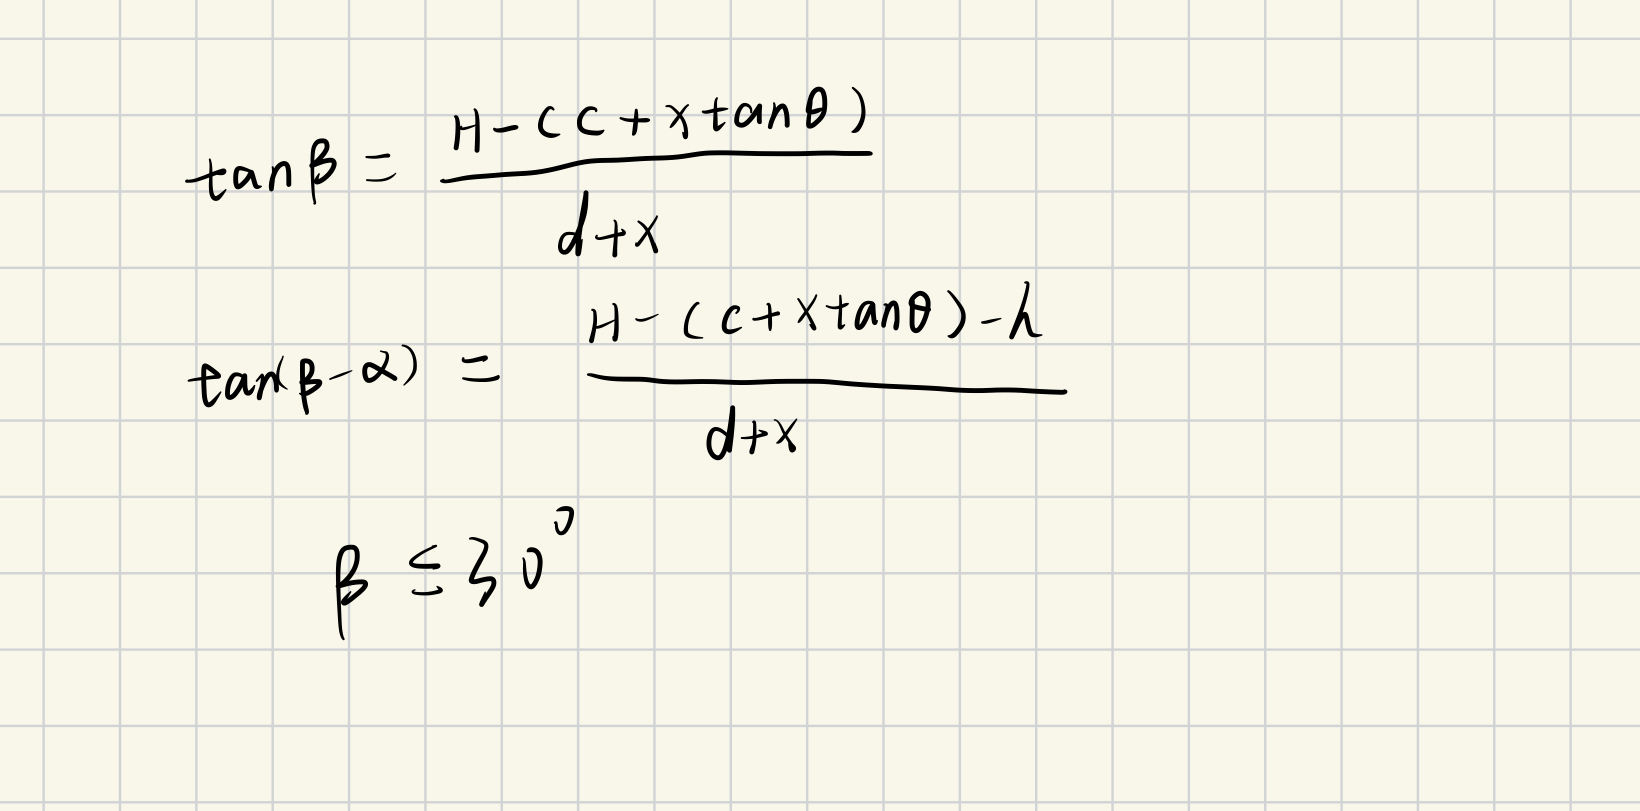 tan β = (H - (c + x tan θ)) / (d + x)
tan(β - α) = (H - (c + x tan θ) - h) / (d + x)
β ≤ 30°